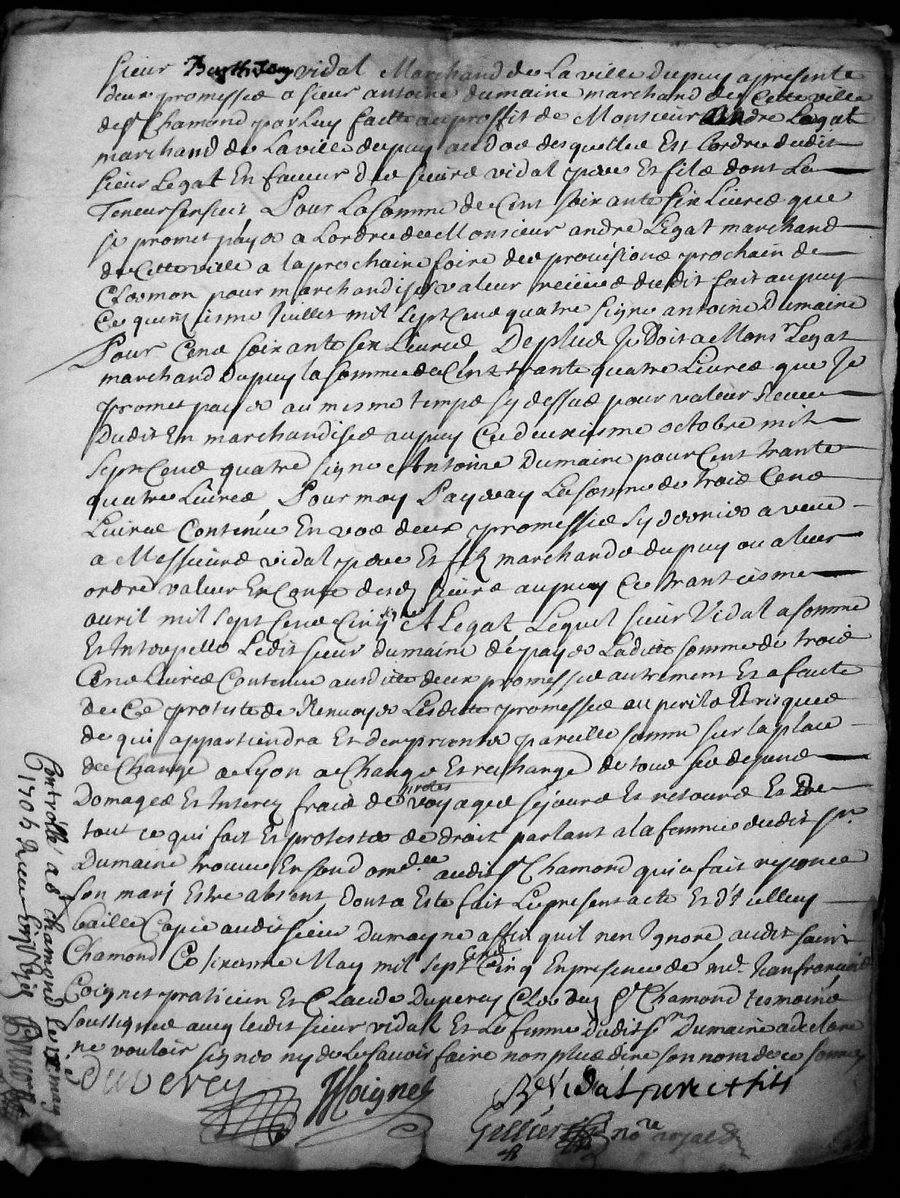 Sieur Barthelemy vidal Marchand de La ville Dupuy a presente
deux promesses a sieur antoine dumaine marchand de Cette ville
de St Chamond par Luy faitte au proffit de Monsieur Andre Legat
marchand de La ville dupuy au dos desquelles Est Lordre dudit
Sieur Legat En faveur des sieurs vidal pere Et fils dont La
Teneur sensuit Pour La Somme de Cent soixante six Livres que
je promet payer a Lordre de Monsieur andre Legat marchand
de Cette ville a la prochaine foire des provisions prochain de
pour marchandises valeur receue dudit fait au puy
Ce quinzisme Juillet mil sept Cens quatre signe antoine Dumaine
Pour Cens soixante six Livres De plus Je Doit a Monsr Legat
marchand Dupuy la somme de Cent trante quatre Livres que Je
promet payer au mesme temps sy dessus pour valeur Receue
Dudit En marchandises au puy Ce deuxiesme octobre mil
Sept Cens quatre signe Antoine Dumaine pour Cent trante
quatre Livres Pour moy Payeray La somme de trois Cens
Livres Contenue En vos deux promesses sy derniere a veue
a Messieurs vidal pere Et fils marchands du puy ou a leur
ordre valeur En Conte desd sieurs au puy Ce trantiesme
avril mil sept Cens Cinq A Legat Lequel sieur Vidal a somme
Et Interpelle Ledit sieur dumaine de payer Laditte somme de trois
Cens Livres Contenue ausditte deux promesses autrement Et a faute
de Ce proteste de Renvoyer Lesditte promesses au peril Et risques
de qui appartiendra Et de prendre pareille somme sur la place
de Change de Lyon a Change Et rechange de tous ses despans
Domages Et Interez frais de protes voyages sejours Et retours Et De
tout ce qui fait Et proteste de droit parlant a la femme dudit sr
Dumaine trouvee En son domicille audit St Chamond qui a fait reponce
son mary Estre absent dont a Este fait Le present acte Et d'Icelluy
baille Copie audit sieur Dumayne affin quil nen Ignore audit saint
Chamond Ce sixieme May mil sept Cens Cinq En presence de me Jean francois
Coignet praticien Et Claude Duverey Clerc dud St Chamond tesmoins
soussignes avec ledit sieur vidal Et La femme Dudit Sr Dumaine a declare
ne vouloir signer ny de Le savoir faire non plus dire son nom de ce somme
Duverey
JCoignet
B Vidal pere et fils
Gellier nore royal
Controllé a St Chamond Le may
1705 receu